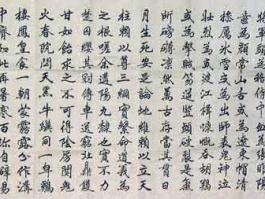 將軍頭為嵇侍中血為張睢陽齒
為顏常山舌或為遼東帽清
操厲冰雪或為出師表鬼神泣
壯烈或為渡江楫慷慨吞胡羯
或為擊賊笏逆豎頭破裂是氣
所磅礴凜烈萬古存當其貫日
月生死安足論地維賴以立天
柱賴以尊三綱實繫命道義為
之根嗟予遘陽九隸也實不力
楚囚纓其冠傳車送窮北鼎鑊
甘如飴求之不可得陰房闃鬼
火春院閟天黑牛驥同一皂雞
棲鳳凰食一朝蒙霧露分作溝
中瘠如此再寒暑百沴自辟易